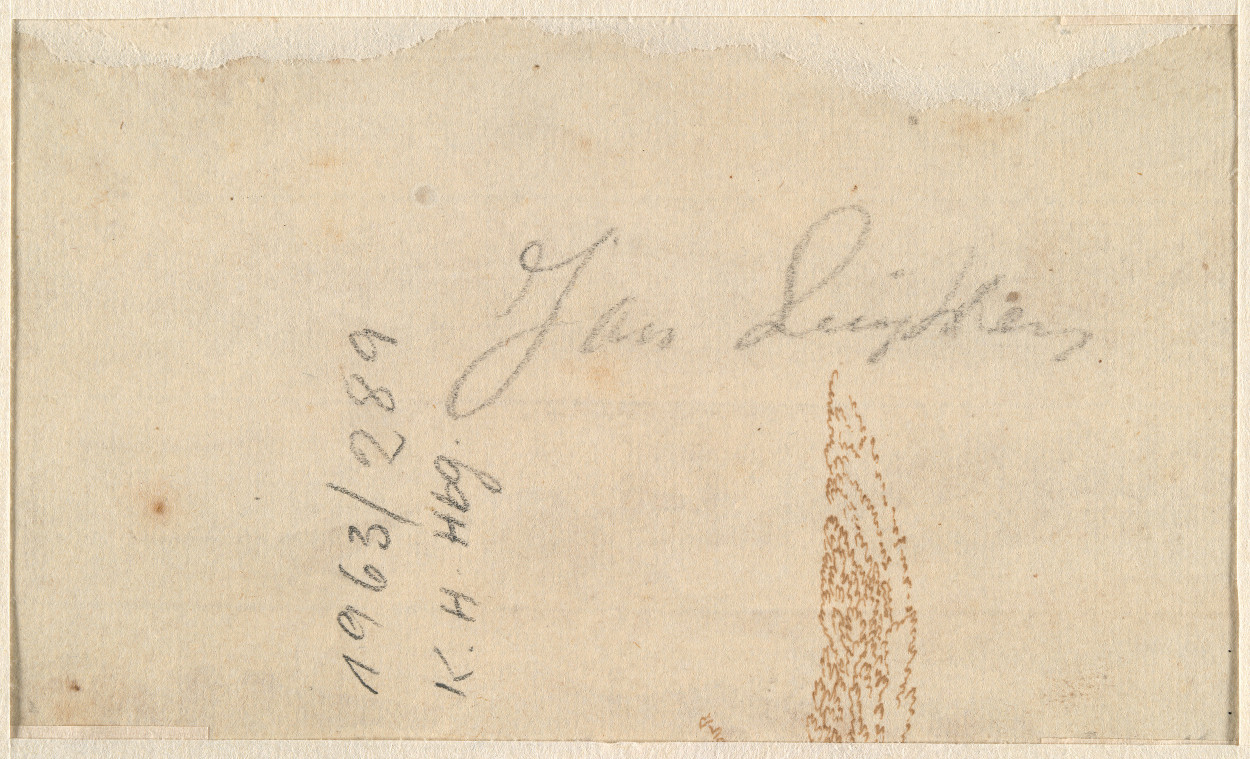 Jan Luijkens
1963/289
K. H Hbg.